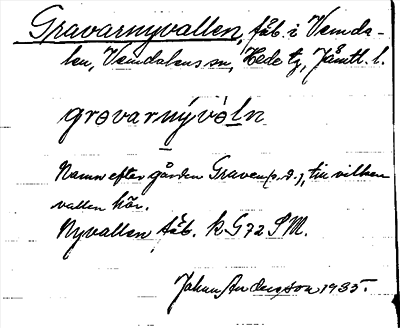 Gravarnyvallen, fäb. i Vemda-
len, Vemdalens sn, Hede tg, Jämtl. l.
grøvarnývò̀ln
Namn efter gården Graven (s.d.), till vilken
vallen hör.
Nyvallen fäb. k G72 SM.
Johan Andersson 1935.